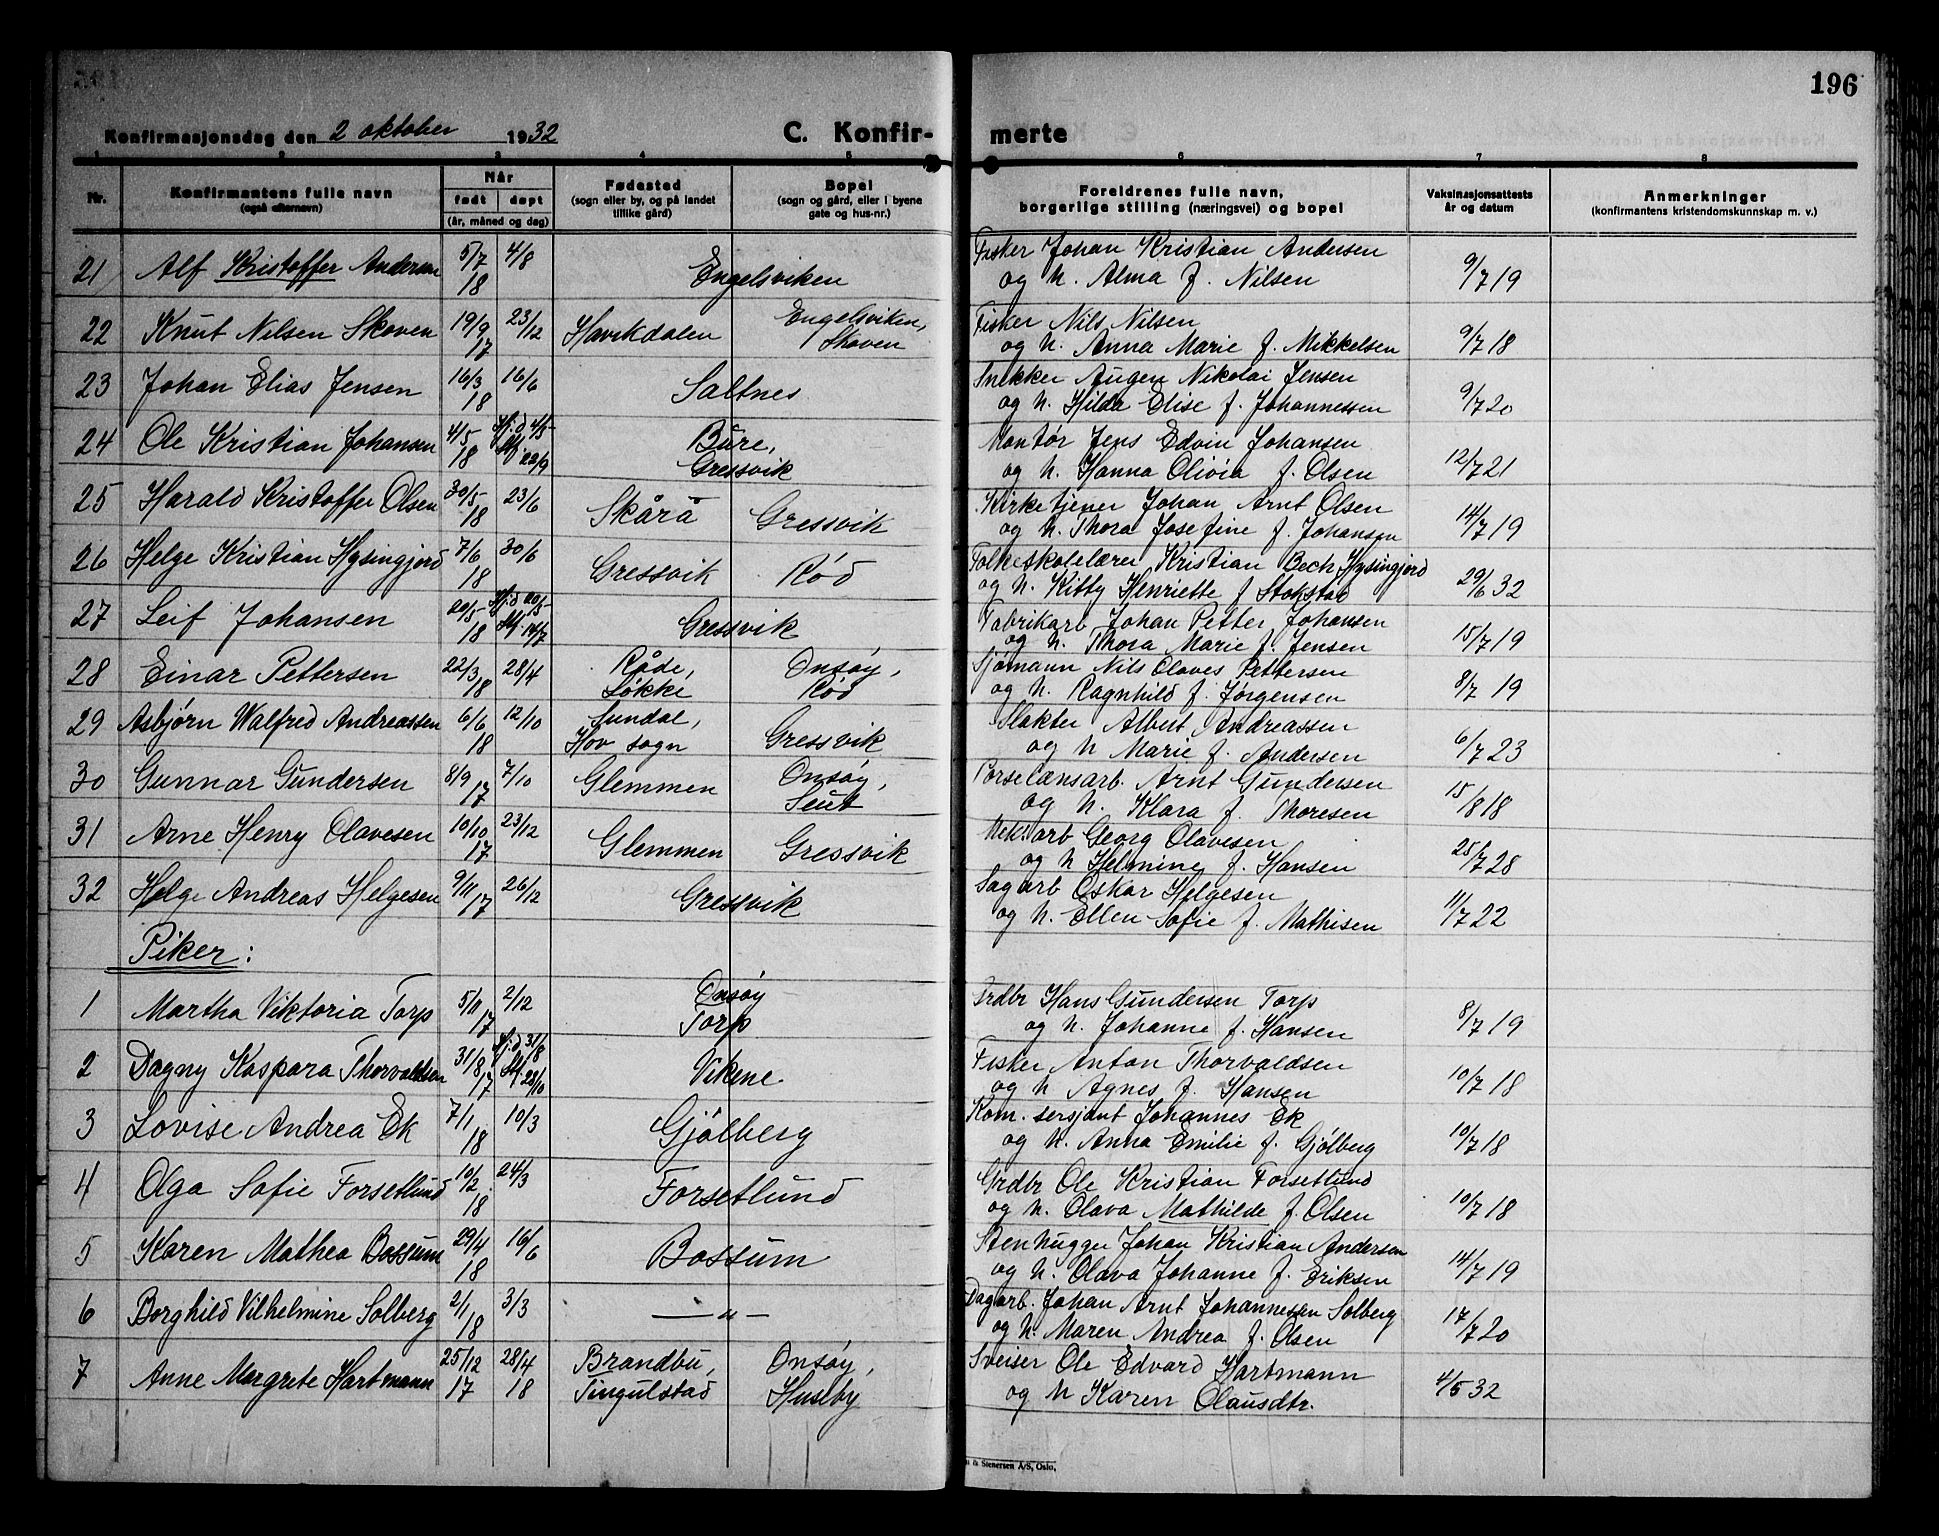 196
Konfirmasjonsdag den 2 oktober 1932 C. Konfir- merte
1 2 3 4 5 6 7 8
Nr. Konfirmantens fulle navn (også efternavn) Når født døpt (år, måned og dag) Fødested (sogn eller by, og på landet tillike gård) Bopel (sogn og gård, eller i byene gate og hus-nr.) Foreldrenes fulle navn, borgerlige stilling (næringsvei) og bopel Vaksinasjonsattests år og datum Anmerkninger (konfirmantens kristendomskunnskap m. v.)
21 Alf Kristoffer Andersen 5/7 18 4/8 Engelsviken Fisker Johan Kristian Andersen
og h. Alma f. Nilsen 9/7 19
22 Knut Nilsen Skoven 19/9 17 23/12 Havikdalen Engelsviken, Skoven Fisker Nils Nilsen
og h. Anna Marie f. Mikkelsen 9/7 18
23 Johan Elias Jensen 16/3 18 16/6 Saltnes Snekker Augen Nikolai Jensen
og h. Hilda Elise f. Johannessen 9/7 20
24 Ole Kristian Johansen 4/5 18 Hj.d 4/5 St. 22/9 Bure, Gressvik Montør Jens Edvin Johansen
og h. Hanna Olivia f. Olsen 12/7 21
25 Harald Kristoffer Olsen 30/5 18 23/6 Skårå Gressvik Kirketjener Johan Arnt Olsen
og h. Thora Josefine f. Johansen 14/7 19
26 Helge Kristian Hysingjord 7/6 18 30/6 Gressvik Rød Folkeskolelærer Kristian Bech Hysingjord
og h. Kitty Henriette f Stokstad 29/6 32
27 Leif Johansen 20/5 18 Hj.d 20/5 St. 14/7 Gressvik Fabrikarb Johan Petter Johansen
og h. Thora Marie f. Jensen 15/7 19
28 Einar Pettersen 22/3 18 28/4 Råde, Løkke Onsøy, Rød Sjømann Nils Olaves Pettersen
og h. Ragnhild f. Jørgensen 8/7 19
29 Asbjørn Walfred Andreassen 6/6 18 12/10 Sundal, Hov sogn Gressvik Slakter Albert Andreassen
og h Marie f. Andersen 6/7 23
30 Gunnar Gundersen 8/9 17 7/10 Glemmen Onsøy, Seut Porselænsarb. Arnt Gundersen
og h. Klara f. Thoresen 15/8 18
31 Arne Henry Olavesen 10/10 17 23/12 Glemmen Gressvik Mek. arb Georg Olavesen
og h Helmine f. Hansen 25/7 28
32 Helge Andreas Helgesen 9/11 17 26/12 Gressvik Sagarb Oskar Helgesen
og h. Ellen Sofie f. Mathisen 11/7 22
Piker:
1 Martha Viktoria Torp 5/11 17 2/12 Onsøy Torp Grdbr Hans Gundersen Torp
og h. Johanne f. Hansen 8/7 19
2 Dagny Kaspara Thorvaldsen 31/8 17 Hj.d 31/8 St. 28/10 Vikene Fisker Anton Thorvaldsen
og h Agnes f. Hansen 10/7 18
3 Lovise Andrea Ek 7/1 18 10/3 Gjølberg Kom. sersjant Johannes Ek
og h. Anna Emilie f. Gjølberg 10/7 18
4 Olga Sofie Forsetlund 10/2 18 24/3 Forsetlund Grdbr Ole Kristian Forsetlund
og h. Olava Mathilde f. Olsen 10/7 18
5 Karen Mathea Bossum 29/4 18 16/6 Bossum Stenhugger Johan Kristian Andersen
og h. Olava Johanne f. Eriksen 14/7 19
6 Borghild Vilhelmine Solberg 2/1 18 3/3 — " — Dagarb. Johan Arnt Johannessen Solberg
og h. Maren Andrea f. Olsen 17/7 20
7 Anne Margrete Hartmann 25/12 17 28/4 18 Brandbu, Tingulstad Onsøy, Huseby Sveiser Ole Edvard Hartmann
og h Karen Olausdtr. 4/5 32
& Stenersen A/S, Oslo,